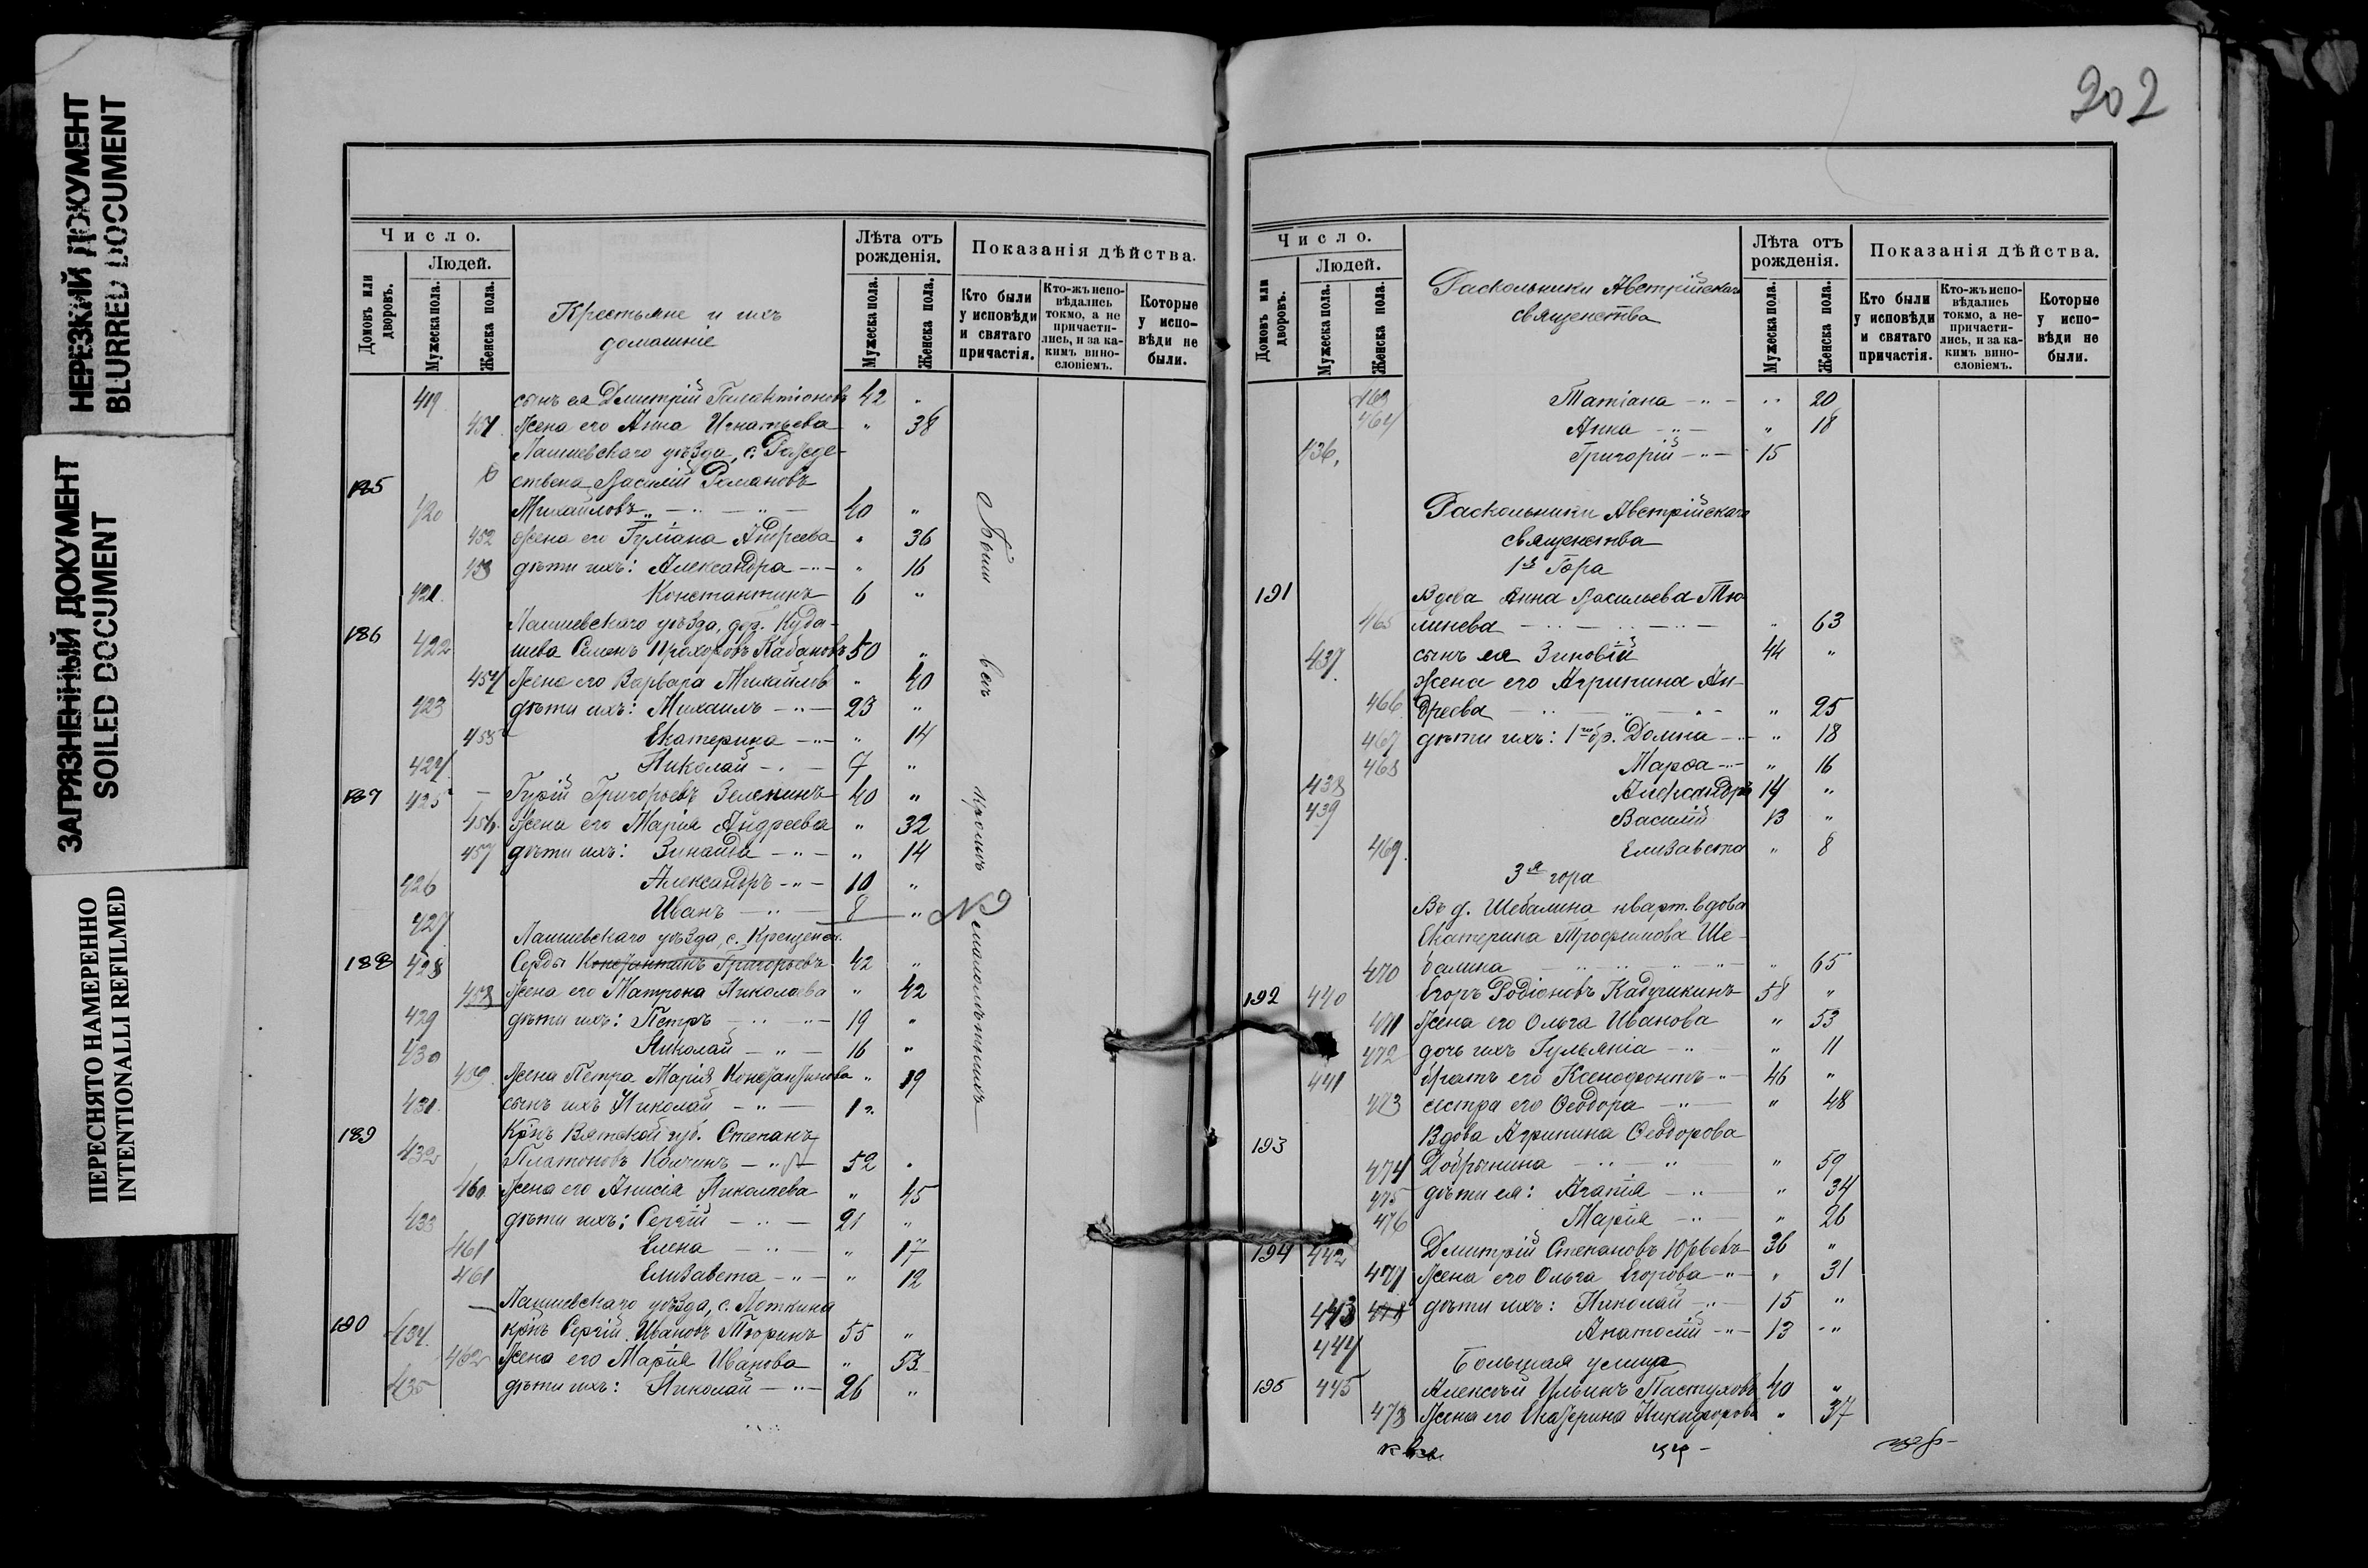 НЕРЕЗКИЙ ДОКУМЕНТ
BLURRED DOCUMENT
ЗАГРЯЗНЕННЫЙ ДОКУМЕНТ
SOILED DOCUMENT
ПЕРЕСНЯТО НАМЕРЕННО
INTENTIONALLI REFILMED
Число.
Людей.
Домовъ или дворовъ.
Мужеска пола.
Женска пола.
Крестьяне и ихъ
домашніе
Лѣта отъ рожденія.
Мужеска пола.
Женска пола.
Показанія дѣйства.
Кто были у исповѣди и святаго причастія.
Кто-жъ исповѣдались токмо, а не причастились, и за какимъ винословіемъ.
Которые у исповѣди не были.
419 сынъ ея Дмитрій Галактіоновъ 42 "
451 Жена его Анна Игнатьева " 38
Лаишевскаго уѣзда, с. Рожде-
185 ствена Василій Романовъ
420 Михайловъ 40 "
452 Жена его Гуліана Андреева " 36
453 дѣти ихъ: Александра " 16
421. Константинъ 6 "
Лаишевскаго уѣзда, дер. Куда-
186 422 шева Семенъ Прохоровъ Кабановъ 50 "
454 Жена его Варвара Михайлов " 40
423 дѣти ихъ: Михаилъ 23 "
455 Екатерина " 14
424 Николай 7 "
187 425 Гурій Григорьевъ Зеленинъ 40 "
456. Жена его Марія Андреева " 32
457 дѣти ихъ: Зинаида " 14
426 Александръ 10 "
427 Иванъ 8 "
Лаишевскаго уѣзда, с. Крещенск.
188 428 Серды Константинъ Григорьевъ 42 "
458 Жена его Матрона Николаева " 42
429 дѣти ихъ: Петръ 19 "
430 Николай 16 "
459. Жена Петра Марія Константинова " 19
431. сынъ ихъ Николай 1 "
189 Кр-нъ Вятской губ. Степанъ
432 Платоновъ Колчинъ 52 "
460 Жена его Анисія Николаева " 45
433 дѣти ихъ: Сергій 21 "
461 Елена " 17
461 Елизавета " 12
Лаишевскаго уѣзда, с.
190 434. кр-нъ Сергій Ивановъ Тюринъ 55 "
462 Жена его Марія Иванова " 53
435 дѣти ихъ: Николай 26 "
Были всѣ кромѣ малолѣтнихъ
202
Число.
Людей.
Домовъ или дворовъ.
Мужеска пола.
Женска пола.
Раскольники Австрійскаго
священства
Лѣта отъ рожденія.
Мужеска пола.
Женска пола.
Показанія дѣйства.
Кто были у исповѣди и святаго причастія.
Кто-жъ исповѣдались токмо, а не-причастились, и за какимъ винословіемъ.
Которые у исповѣди не были.
463 Татіана " 20
464 Анна " 18
436. Григорій 15
Раскольники Австрійскаго
священства
1я Гора
191 Вдова Анна Васильева Тю-
465 линева " 63
437. сынъ ея Зиновій 44 "
Жена его Агрипина Ан-
466. дреева " 25
467 дѣти ихъ: 1го бр. Домна " 18
468 Марѳа " 16
438 Александръ 14 "
439 Василій 13 "
469. Елизавета " 8
3я гора
Въ д. Шебалина кварт. вдова
Екатерина Трофимова Ше-
470 балина " 65
192 440 Егоръ Родіоновъ Кадушкинъ 58 "
471 Жена его Ольга Иванова " 53
472 дочь ихъ Гульянія " 11
441 братъ его Ксенофонтъ 46 "
473 сестра его Ѳеодора " 48
193 Вдова Агрипина Ѳеодорова
474 Добрынина " 59
475 дѣти ея: Агапія " 34
476 Марія " 26
194 442 Дмитрій Степановъ Юрьевъ 36 "
477 Жена его Ольга Егорова " 31
443 478 дѣти ихъ: Николай 15 "
444 Анатолій 13 "
Большая улица
195 445 Алексѣй Ильинъ Пастуховъ 40 "
478 Жена его Екатерина Никифорова " 37